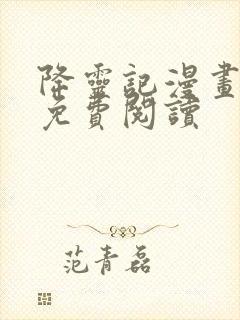 降靈記漫畫
免費閱讀
范青磊